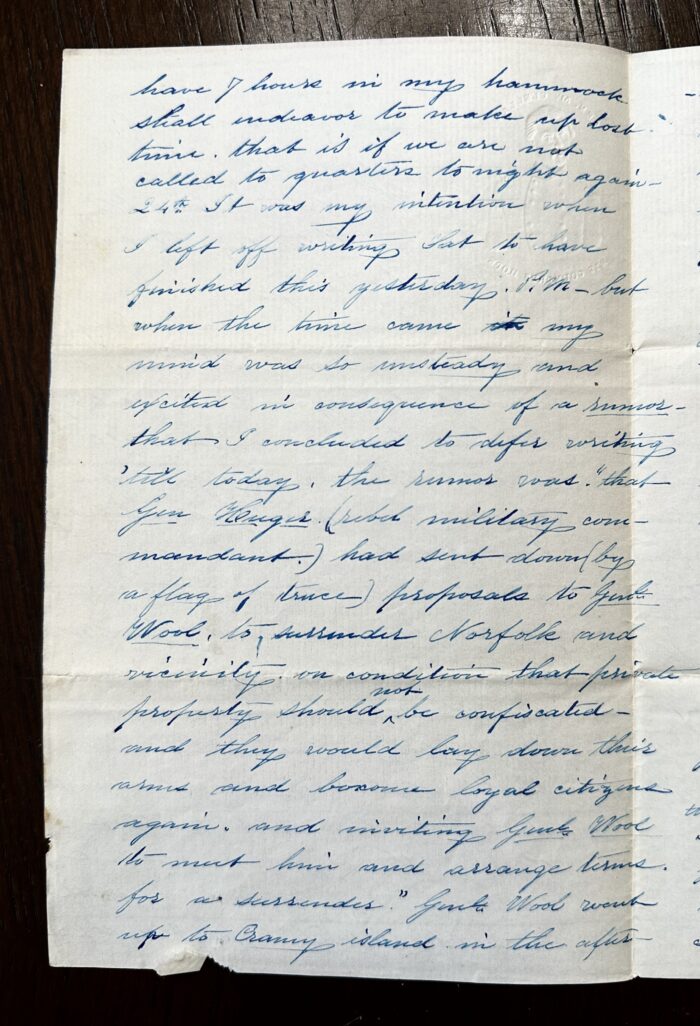 have 7 hours in my hammock
shall endeavor to make up lost
time. that is if we are not
called to quarters to night again-
24th It was my intention when
I left off writing Sat to have
finished this yesterday. P.M- but
when the time came my
mind was so unsteady and
excited in consequence of a rumor-
that I concluded to defer writing
'till today. the rumor was. "that
Gen Huger. (rebel military com-
mandant.) had sent down (by
a flag of truce) proposals to Genl.
Wool. to surrender Norfolk and
vicinity. on condition that private
property should not be confiscated-
and they would lay down their
arms and become loyal citizens
again. and inviting Genl. Wool
to meet him and arrange terms.
for a surrender." Genl. Wool went
up to Crany island in the after-